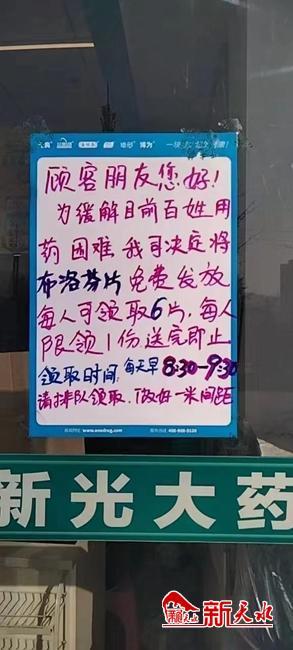 顾客朋友您好！
为缓解目前百姓用
药困难，我司决定将
布洛芬片免费发放
每人可领取6片，每人
限领1份送完即止
领取时间：每天早8:30-9:30
请排队领取，做好一米间距
新光大药
新天水